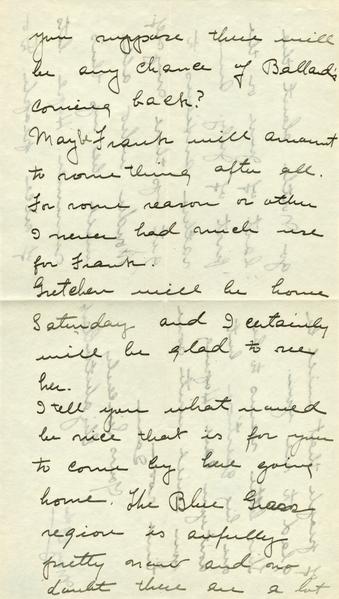 you suppose there will
be any chance of Ballards
coming back?
Maybe Frank will amount
to something after all.
For some reason or other
I never had much use
for Frank.
Gretchen will be home
Saturday and I certainly
will be glad to see
her.
I tell you what would
be nice that is for you
to come by here going
home. The Blue Grass
region is awfully
pretty now and no
doubt there are a lot